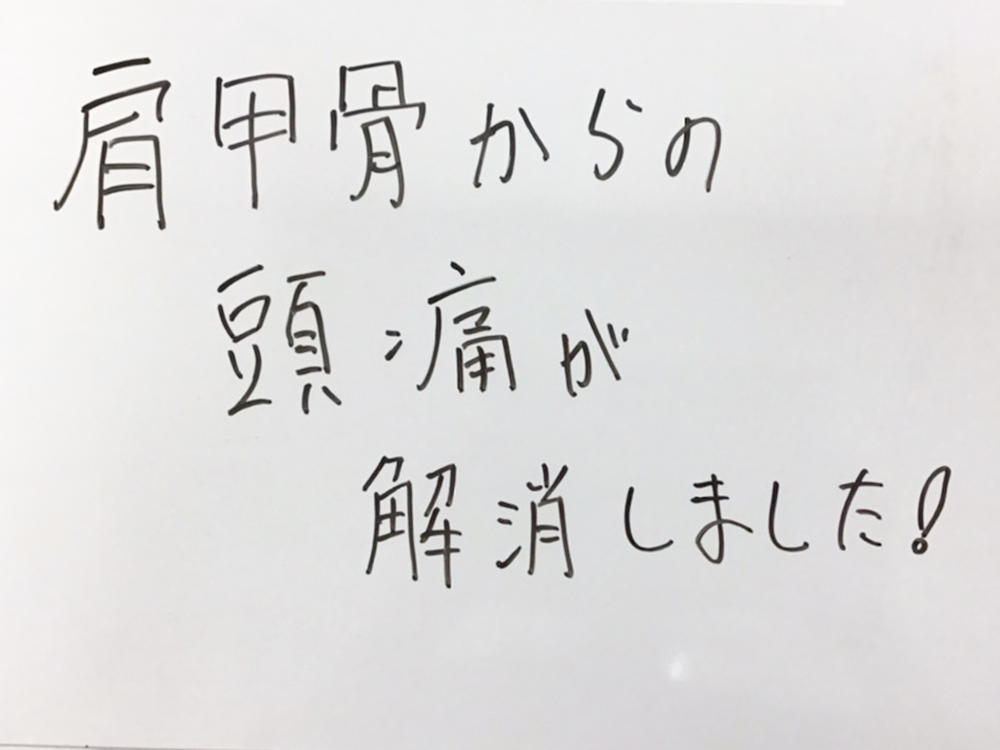 肩甲骨からの
頭痛が
解消しました!